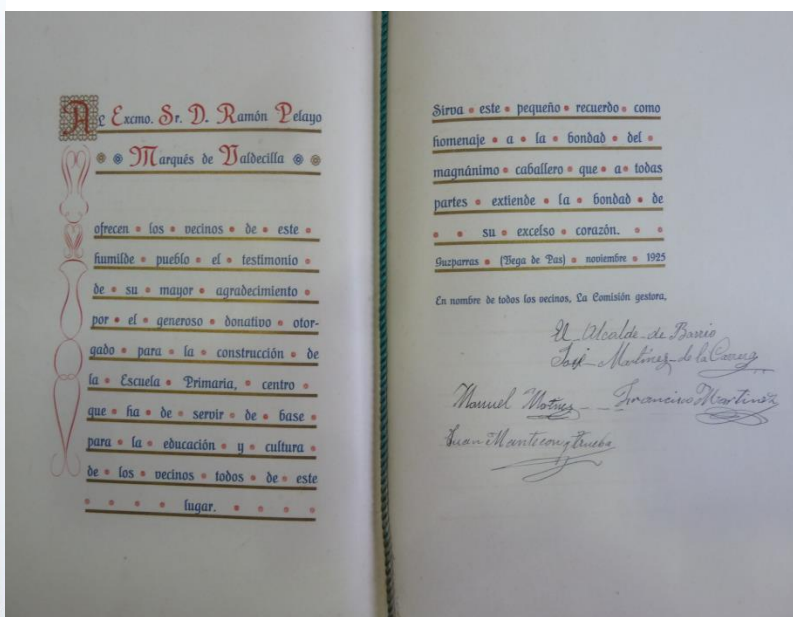 Al Excmo. Sr. D. Ramón Pelayo
Marqués de Valdecilla
ofrecen los vecinos de este
humilde pueblo el testimonio
de su mayor agradecimiento
por el generoso donativo otor-
gado para la construcción de
la Escuela Primaria, centro
que ha de servir de base
para la educación y cultura
de los vecinos todos de este
lugar.
Sirva este pequeño recuerdo como
homenaje a la bondad del
magnánimo caballero que a todas
partes extiende la bondad de
su excelso corazón.
Guzparras (Vega de Pas) noviembre 1925
En nombre de todos los vecinos, La Comisión gestora,
El Alcalde de Barrio
José Martinez de la
Manuel Francisco Martinez
Juan Mantecon y Trueba